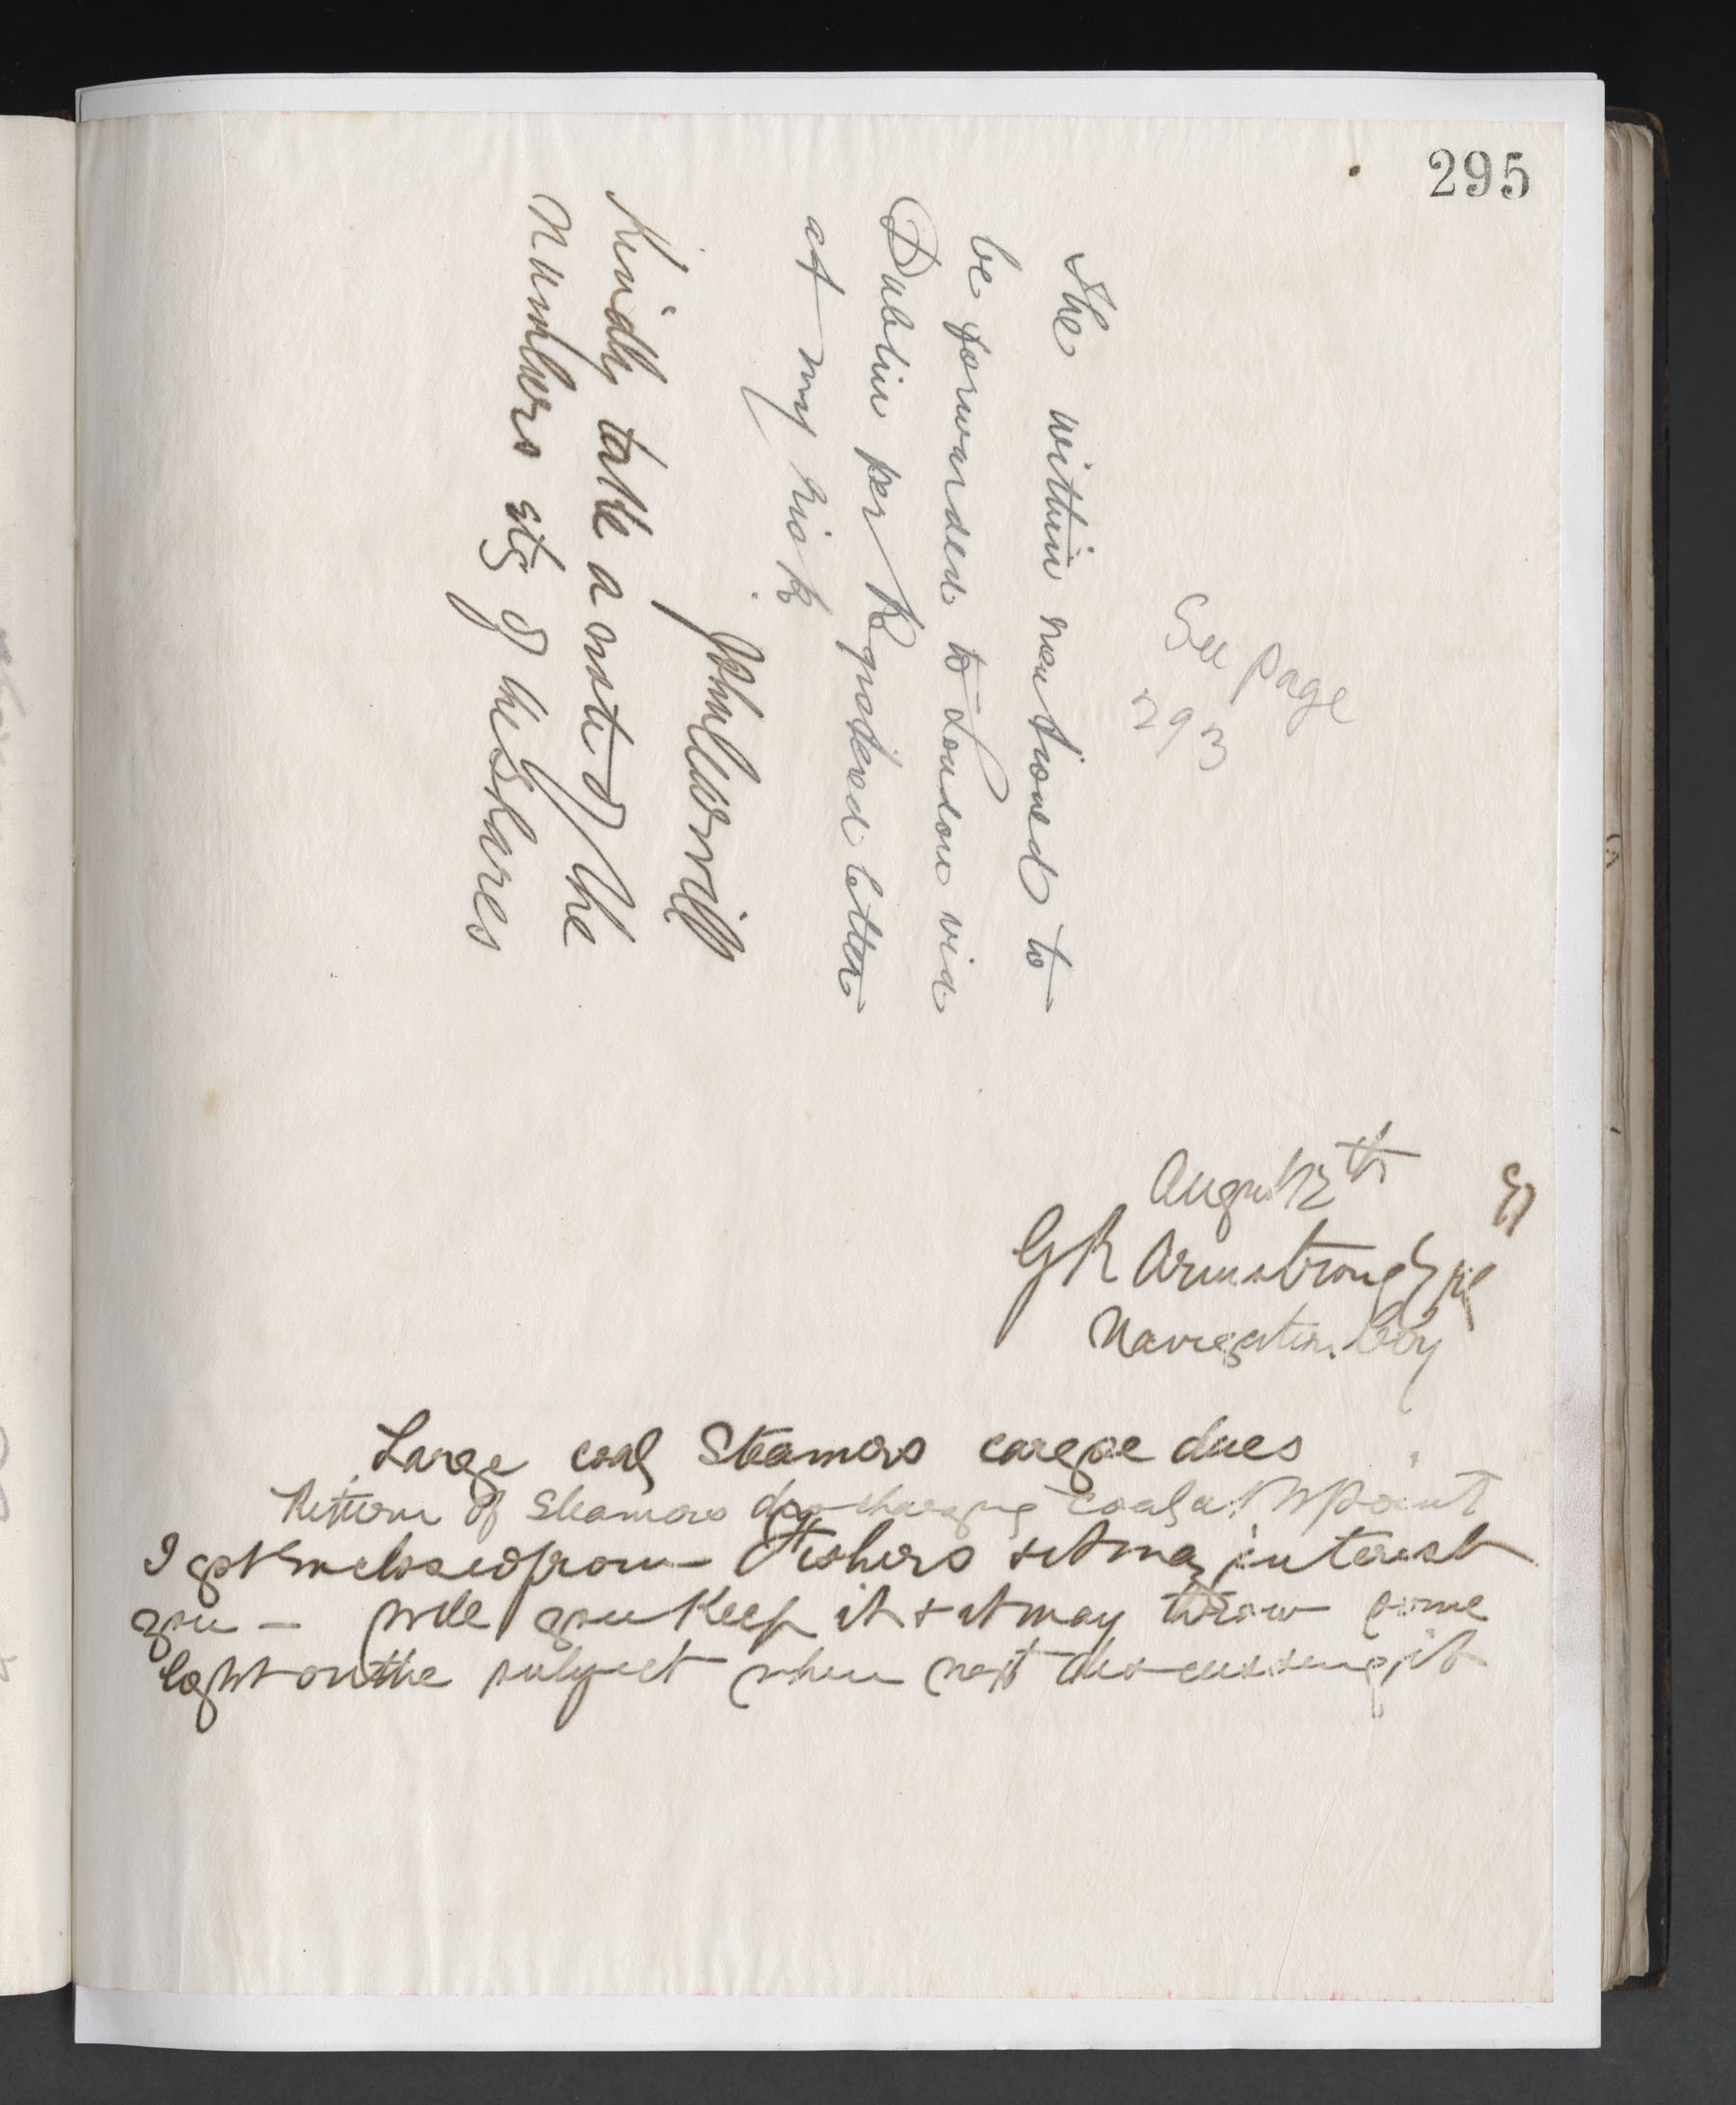 295
See page
293
The within mentioned to
be forwarded to London via
Dublin per Registered letter
at my risk
Kindly take a note of the
numbers etc of the Shares
August 12th 97
G R Armstrong
Navigation Coy
Large coal Steamers cargoe dues
Return of Steamers discharging coal at N point
I got enclosed from Fishers & it may interest
you — will you keep it & it may throw some
light on the subject when next discussing it